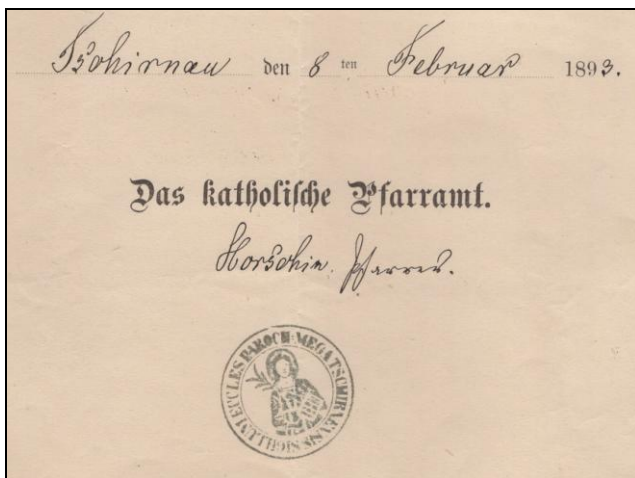 Tschirnau den 8 ten Februar 1893.
Das katholische Pfarramt.
Horschin. Pfarrer.
ECCLES PAROCH: MEGATSCHIRNENSIS